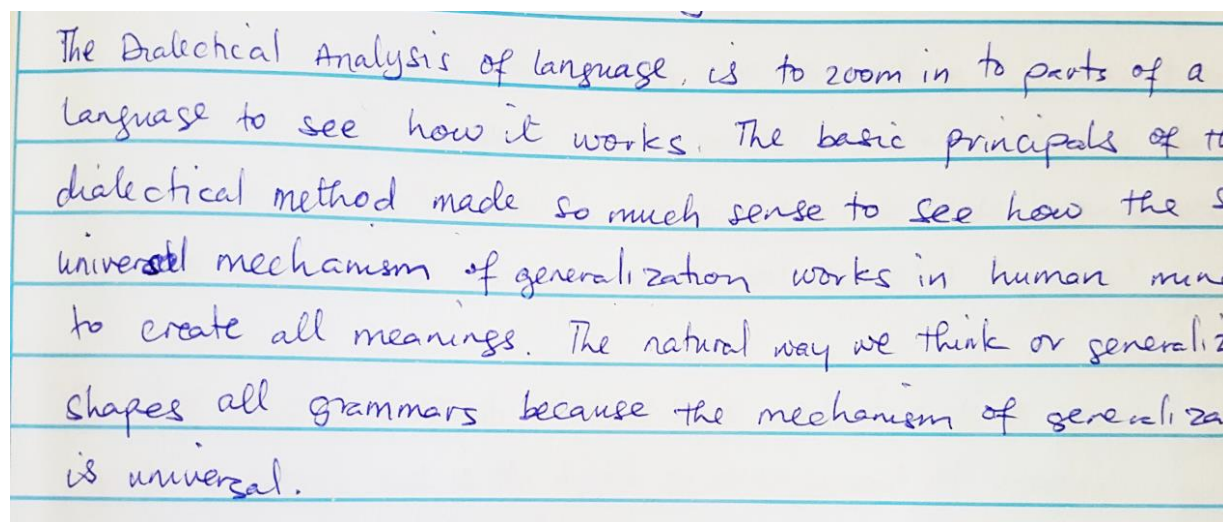 The Dialectical Analysis of language, is to zoom in to parts of a
language to see how it works. The basic principals of
dialectical method made so much sense to see how the
universal mechanism of generalization works in human
to create all meanings. The natural way we think or
shapes all grammars because the mechanism of
is universal.